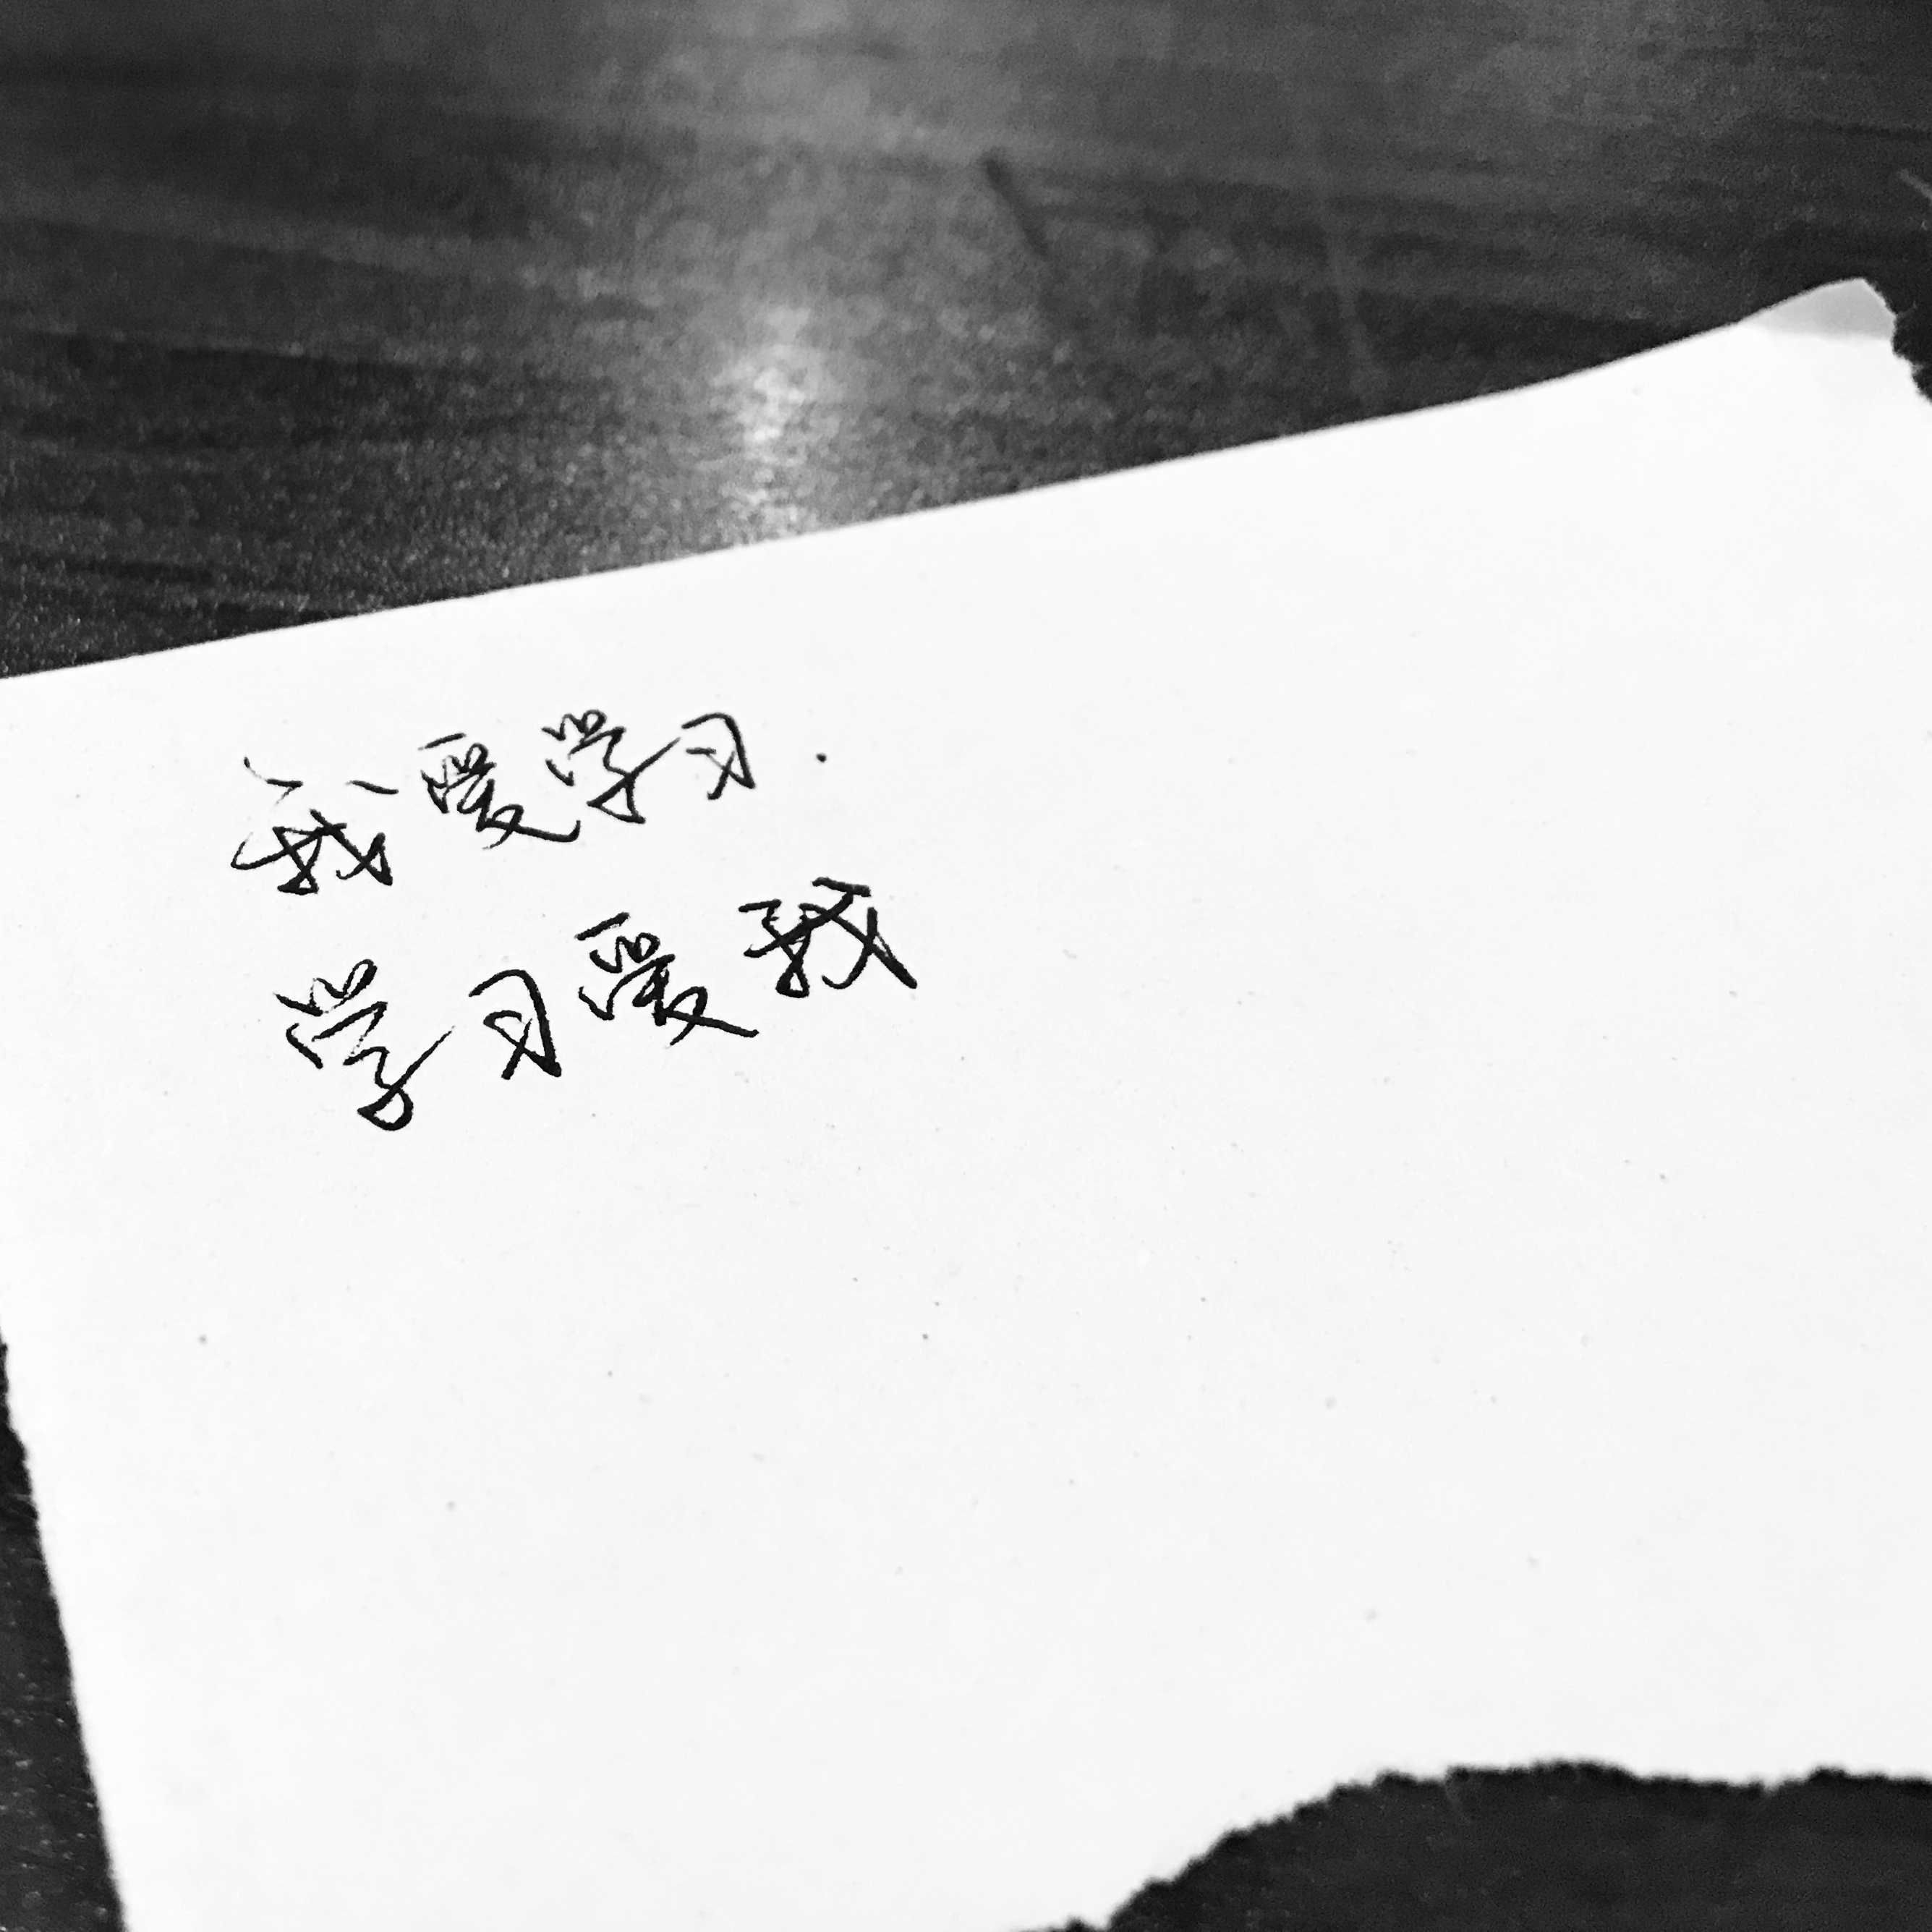 我爱学习.
学习爱我